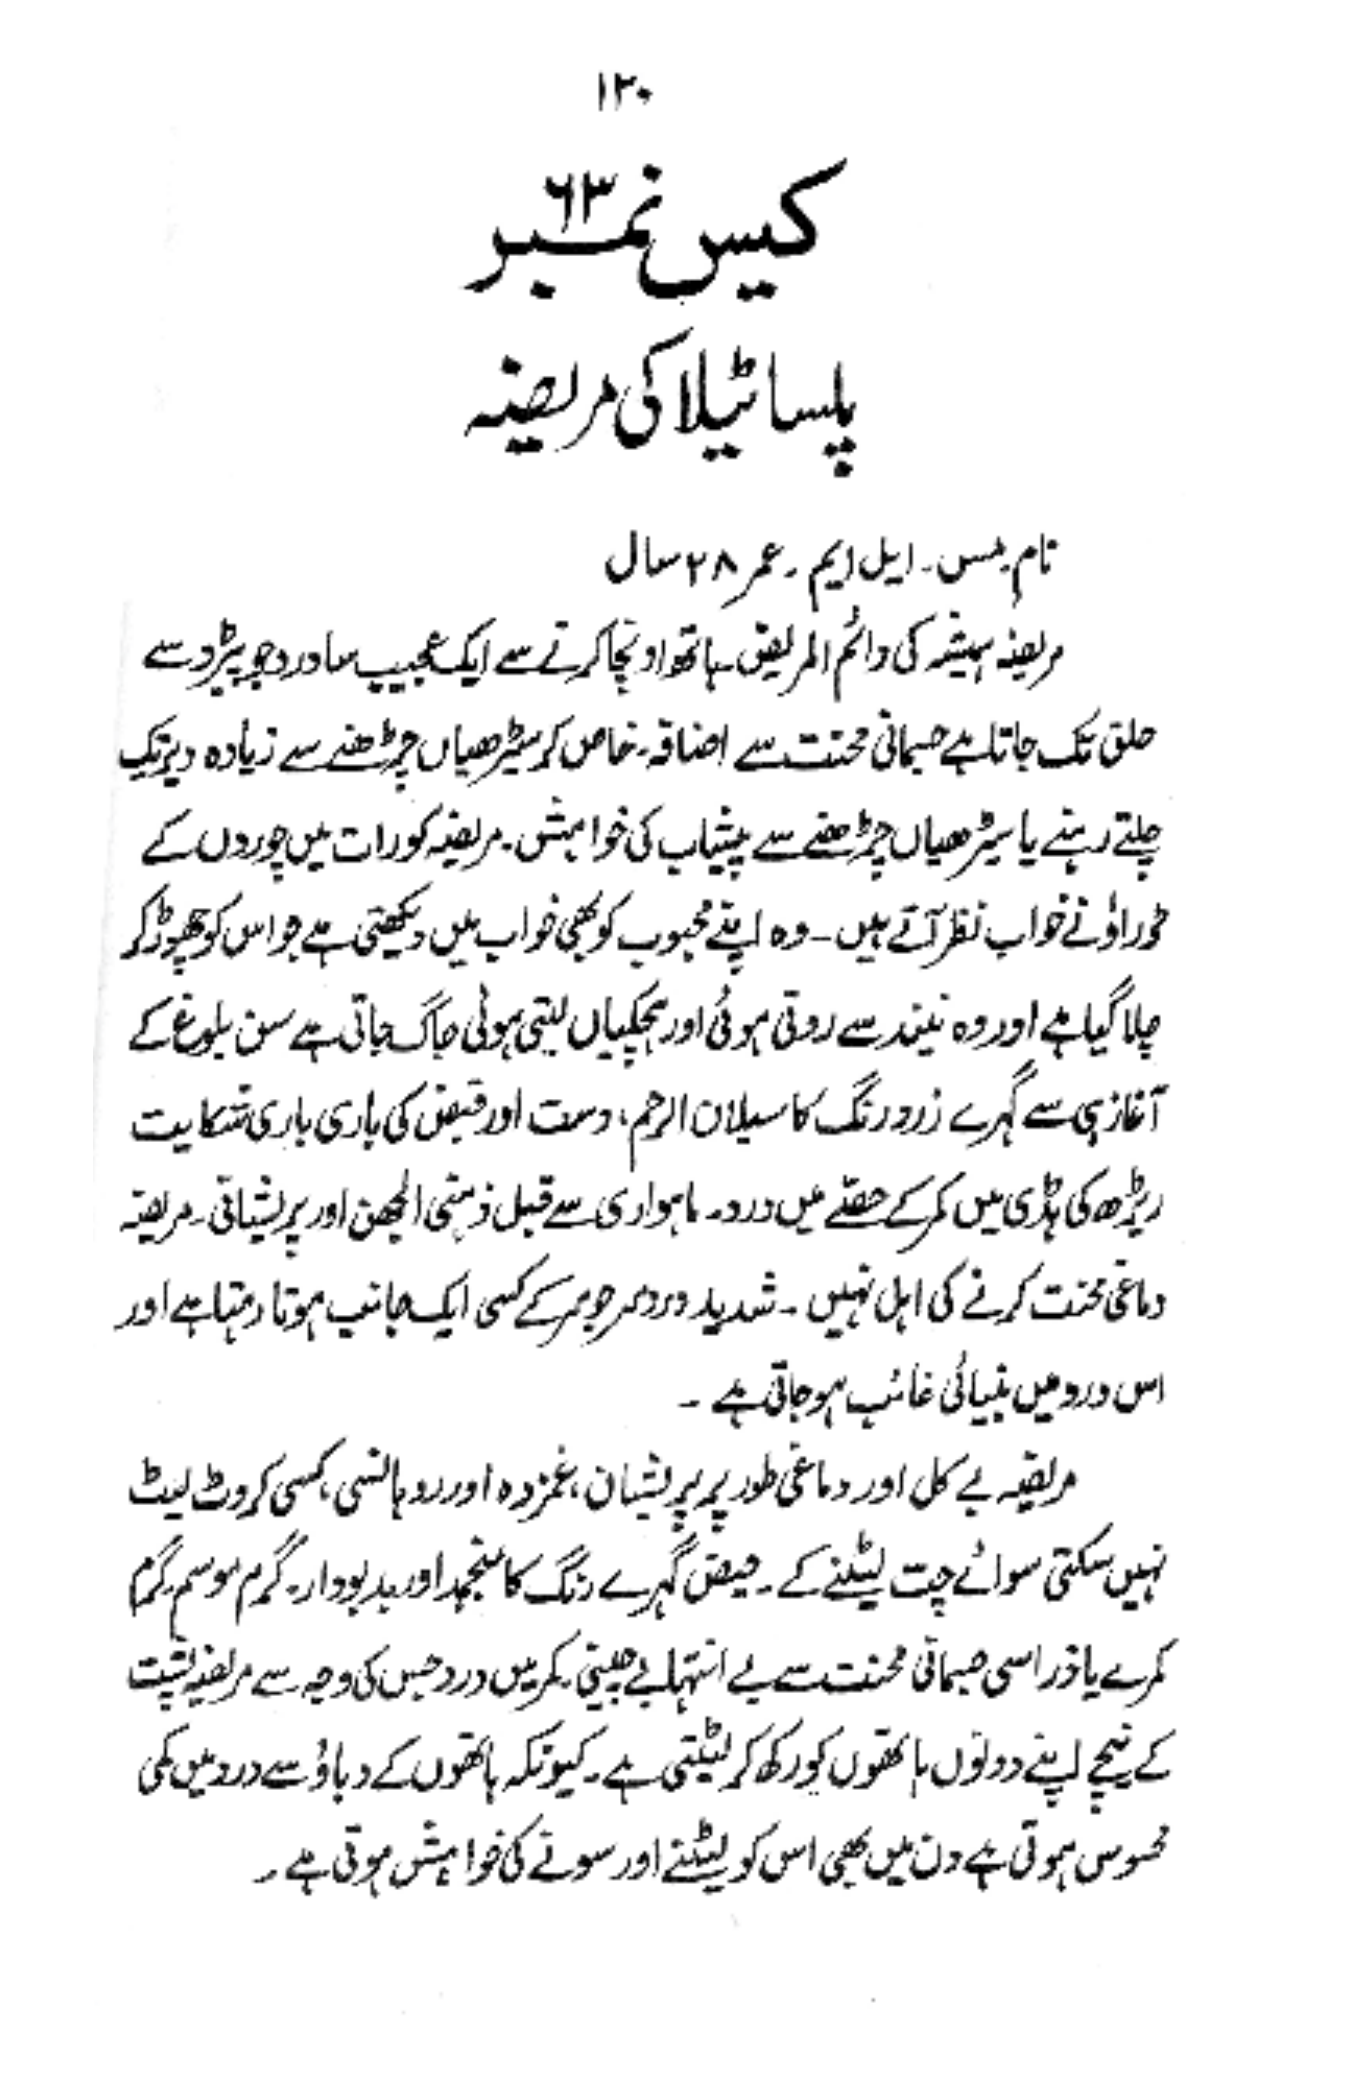 ۱۳۰
کیس نمبر ۶۳
پلساٹیلا کی مریضہ
نام مس۔ ایل ایم۔ عمر ۲۸ سال
مریضہ ہمیشہ کی دائم المریض۔ ہاتھ اونچا کرنے سے ایک عجیب سا درد جو پیڑو سے
حلق تک جاتا ہے جسمانی محنت سے اضافہ۔ خاص کر سیڑھیاں چڑھنے سے زیادہ دیر تک
چلتے رہنے یا سیڑھیاں چڑھنے سے پیشاب کی خواہش۔ مریضہ کو رات میں چوروں کے
ڈراؤنے خواب نظر آتے ہیں۔ وہ اپنے محبوب کو بھی خواب میں دیکھتی ہے جو اس کو چھوڑ کر
چلا گیا ہے اور وہ نیند سے روتی ہوئی اور ہچکیاں لیتی ہوئی جاگ جاتی ہے سن بلوغ کے
آغاز ہی سے گہرے زرد رنگ کا سیلان الرحم، دست اور قبض کی باری باری شکایت
ریڑھ کی ہڈی میں کمر کے حصے میں درد۔ ماہواری سے قبل ذہنی الجھن اور پریشانی۔ مریضہ
دماغی محنت کرنے کی اہل نہیں۔ شدید درد سر جو سر کے کسی ایک جانب ہوتا رہتا ہے اور
اس درد میں بینائی غائب ہو جاتی ہے۔
مریضہ بے کل اور دماغی طور پر پریشان، غمزدہ اور روہانسی، کسی کروٹ لیٹ
نہیں سکتی سوائے چت لیٹنے کے۔ حیض گہرے رنگ کا منجمد اور بدبودار۔ گرم موسم۔ گرم
کمرے یا ذرا سی جسمانی محنت سے بے انتہا بے چینی۔ کمر میں درد جس کی وجہ سے مریضہ پشت
کے نیچے اپنے دونوں ہاتھوں کو رکھ کر لیٹتی ہے۔ کیونکہ ہاتھوں کے دباؤ سے درد میں کمی
محسوس ہوتی ہے دن میں بھی اس کو لیٹنے اور سونے کی خواہش ہوتی ہے۔